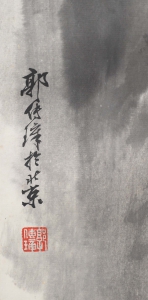 郭传璋於北京
郭传璋